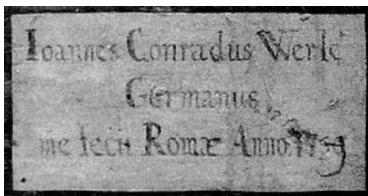 Ioannes Conradus Werle
Germanus
me fecit Romæ Anno